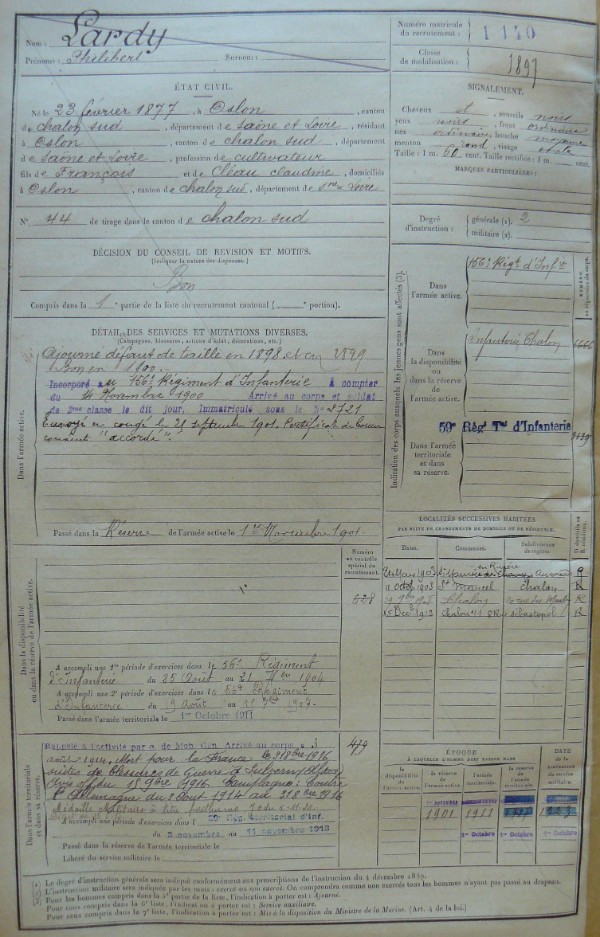 Nom : Lardy
Prénoms : Philibert Surnom :
Numéro matricule du recrutement : 1120
Classe de mobilisation : 1897
ÉTAT CIVIL.
Né le 23 février 1877, à Oslon, canton
d e chalon sud, département de Saône et Loire, résidant
à Oslon, canton de chalon sud, département
de Saône et Loire, profession de cultivateur
fils de François et de Cléau claudine, domiciliés
à Oslon, canton de chalon sud, département de Sne Loire
N° 44 de tirage dans le canton de chalon sud
SIGNALEMENT.
Cheveux et sourcils noirs
yeux noirs, front ordinaire
nez ordinaire, bouche moyenne
menton rond, visage ovale
Taille : 1 m. 60 cent. Taille rectifiée : 1 m. cent.
MARQUES PARTICULIÈRES :
Degré d'instruction : générale (1). 2
militaire (2).
DÉCISION DU CONSEIL DE REVISION ET MOTIFS.
(Indiquer la nature des dispenses.)
Bon
Compris dans la 1e partie de la liste du recrutement cantonal ( portion).
DÉTAIL DES SERVICES ET MUTATIONS DIVERSES.
(Campagnes, blessures, actions d'éclat, décorations, etc.)
Dans l'armée active.
Ajourné défaut de taille en 1898 et en 1899
bon en 1900.
Incorporé au 156e Régiment d'Infanterie à compter
du 14 Novembre 1900 Arrivé au corps et soldat
de 2eme classe le dit jour. Immatriculé sous le N° 2721
Envoyé en congé le 21 septembre 1901. Certificat de bonne
conduite "accordé".
Passé dans la Réserve de l'armée active le 1er Novembre 1901
Indication des corps auxquels les jeunes gens sont affectés (3).
Dans l'armée active.
156e Régt d'Infie
Dans la disponibilité ou dans la réserve de l'armée active.
Infanterie Chalon
Dans l'armée territoriale et dans sa réserve.
59e Régt Tal d'Infanterie
LOCALITÉS SUCCESSIVES HABITÉES
PAR SUITE DE CHANGEMENTS DE DOMICILE OU DE RÉSIDENCE.
Dates. Communes. Subdivision de région. D. domicile ou R. résidence.
1903 St Maurice en Rivière Auxonne R
11 Octob 1903 St Marcel Chalon R
Chalon R
15 Dec 1912 Chalon sébastopol R
Dans la disponibilité ou dans la réserve de l'armée active.
Numéro au contrôle spécial du recrutement.
A accompli une 1re période d'exercices dans le 56e Régiment
d'Infanterie du 25 Août au 21 7bre 1904
A accompli une 2e période d'exercices dans le 56e Régiment
d'Infanterie du 9 Août au 1907
Passé dans l'armée territoriale le 1er Octobre 1911
Dans l'armée territoriale et dans sa réserve.
Rappelé à l'activité par o. de Mob. Gen. Arrivé au corps le 3
août 1914. Mort pour la France le 31 8bre 1916
suites de blessures de Guerre à
Avis off. du 15 9bre 1916. Campagne : Contre
l'Allemagne du 3 Aout 1914 au 31 8bre 1916
Médaille Militaire à titre posthume
A accompli une période d'exercices dans l 59e Rég. territorial d'Inf.
du 3 novembre au 11 novembre 1913
Passé dans la réserve de l'armée territoriale le
Libéré du service militaire le
ÉPOQUE
À LAQUELLE L'HOMME DOIT PASSER DANS
la disponibilité de l'armée active. la réserve de l'armée active. l'armée territoriale. la réserve de l'armée territoriale.
DATE de la libération du service militaire.
1er Novembre
1901 1911
1er Octobre 1er Octobre 1er Octobre
Le degré d'instruction générale sera indiqué conformément aux prescriptions de l'instruction du 4 décembre 1889.
L'instruction militaire sera indiquée par les mots : exercé ou non exercé. On comprendra comme non exercés tous les hommes n'ayant pas passé au drapeau.
Pour les hommes compris dans la 5e partie de la liste, l'indication à porter est : Ajourné.
Pour ceux compris dans la 6e liste, l'indication à porter est : Service auxiliaire.
Pour ceux compris dans la 7e liste, l'indication à porter est : Mis à la disposition du Ministre de la Marine. (Art. 4 de la loi.)